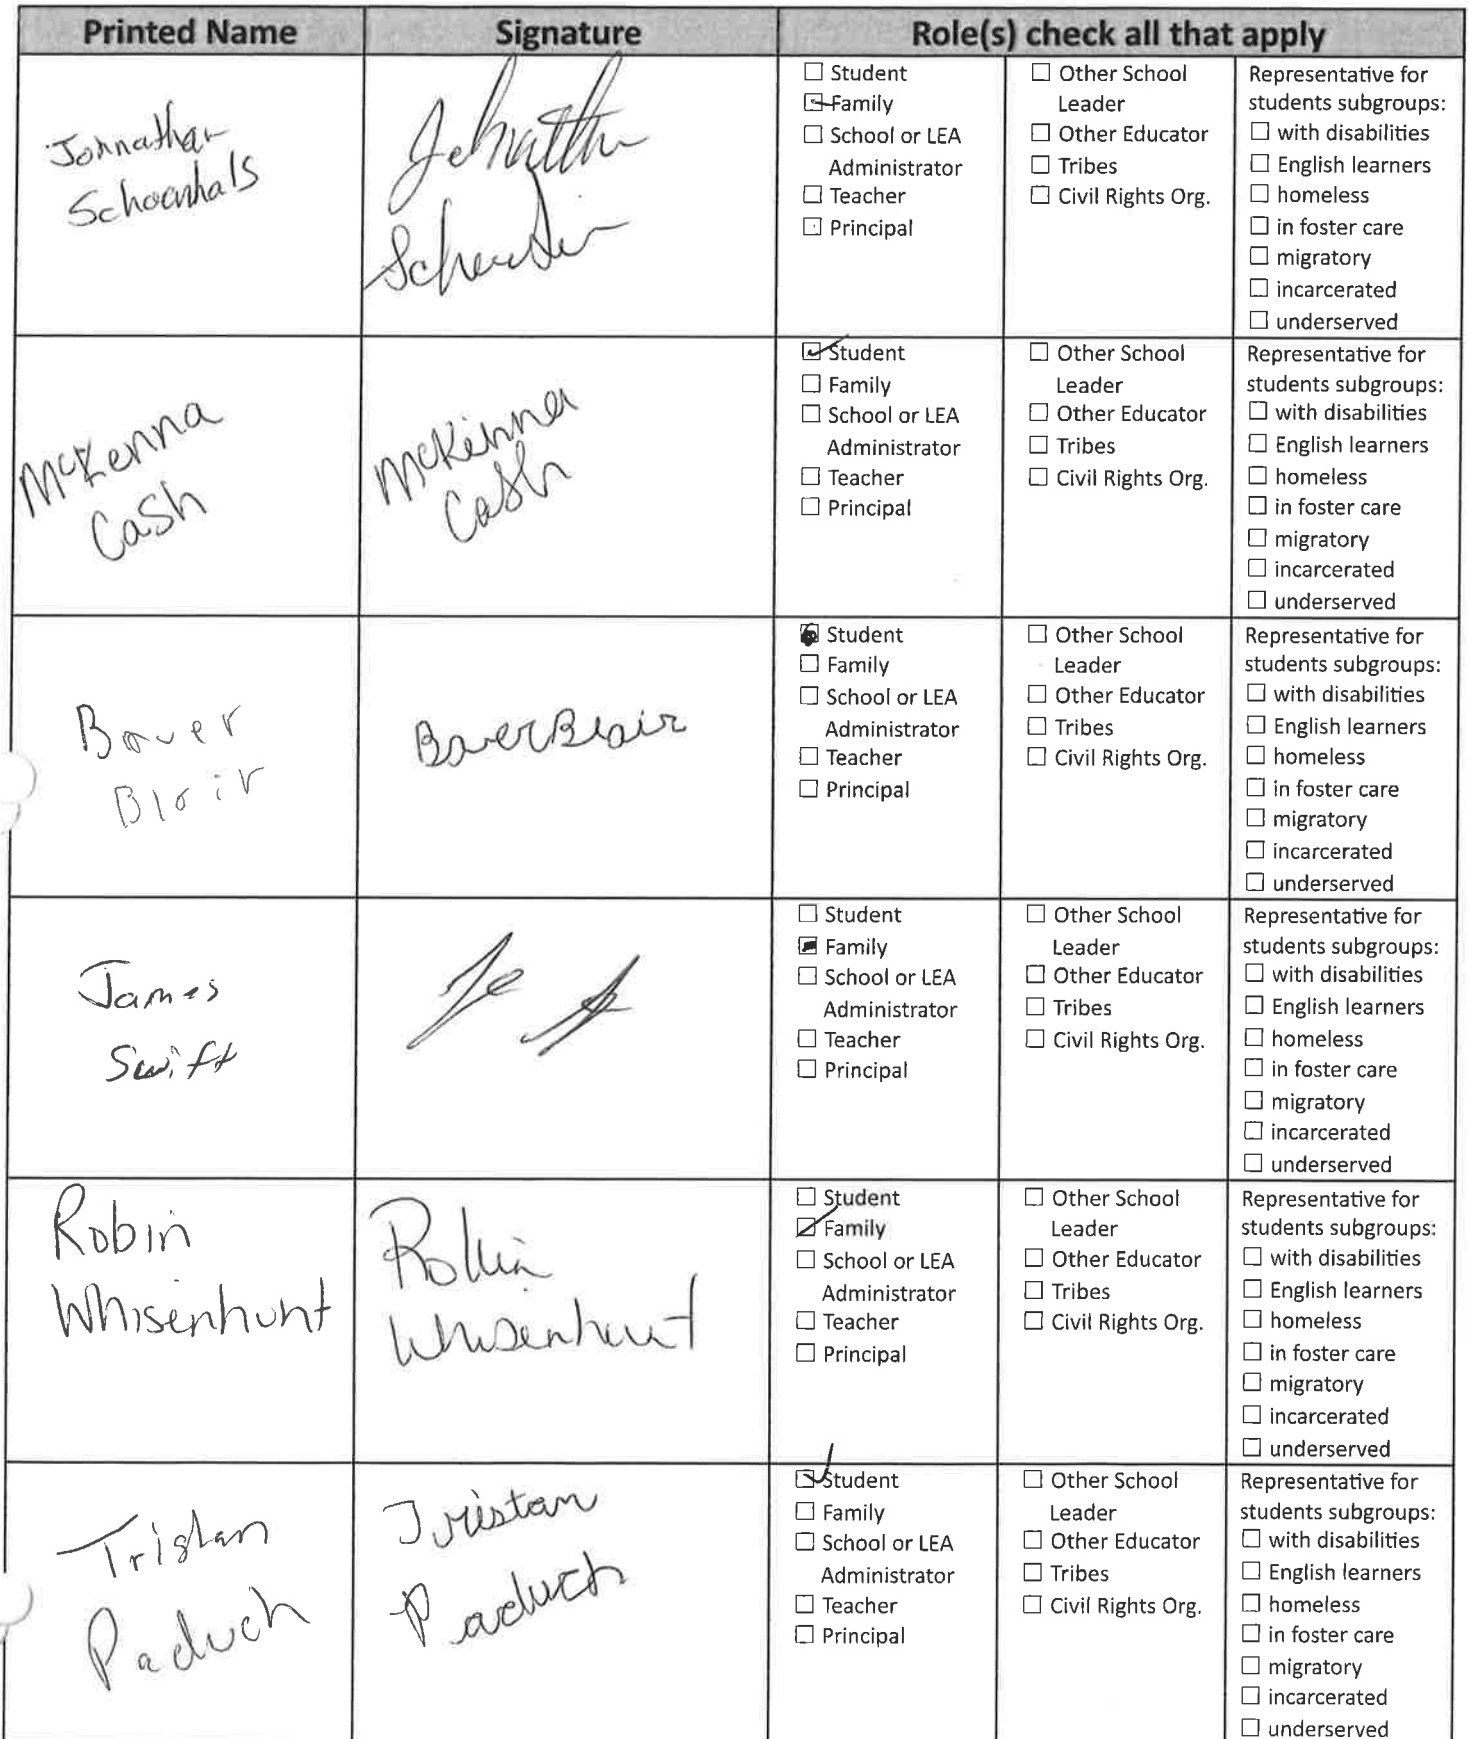 Printed Name Signature Role(s) check all that apply
Johnathan
Schoenhals
☐ Student
☑ Family
☐ School or LEA
Administrator
☐ Teacher
☐ Principal
☐ Other School
Leader
☐ Other Educator
☐ Tribes
☐ Civil Rights Org.
Representative for
students subgroups:
☐ with disabilities
☐ English learners
☐ homeless
☐ in foster care
☐ migratory
☐ incarcerated
☐ underserved
McKenna
Cash
McKenna
Cash
☑ Student
☐ Family
☐ School or LEA
Administrator
☐ Teacher
☐ Principal
☐ Other School
Leader
☐ Other Educator
☐ Tribes
☐ Civil Rights Org.
Representative for
students subgroups:
☐ with disabilities
☐ English learners
☐ homeless
☐ in foster care
☐ migratory
☐ incarcerated
☐ underserved
Baver
Blair
Baver Blair
☑ Student
☐ Family
☐ School or LEA
Administrator
☐ Teacher
☐ Principal
☐ Other School
Leader
☐ Other Educator
☐ Tribes
☐ Civil Rights Org.
Representative for
students subgroups:
☐ with disabilities
☐ English learners
☐ homeless
☐ in foster care
☐ migratory
☐ incarcerated
☐ underserved
James
Swift
☐ Student
☑ Family
☐ School or LEA
Administrator
☐ Teacher
☐ Principal
☐ Other School
Leader
☐ Other Educator
☐ Tribes
☐ Civil Rights Org.
Representative for
students subgroups:
☐ with disabilities
☐ English learners
☐ homeless
☐ in foster care
☐ migratory
☐ incarcerated
☐ underserved
Robin
Whisenhunt
Robin
Whisenhunt
☐ Student
☑ Family
☐ School or LEA
Administrator
☐ Teacher
☐ Principal
☐ Other School
Leader
☐ Other Educator
☐ Tribes
☐ Civil Rights Org.
Representative for
students subgroups:
☐ with disabilities
☐ English learners
☐ homeless
☐ in foster care
☐ migratory
☐ incarcerated
☐ underserved
Tristan
Paduch
Tristan
Paduch
☑ Student
☐ Family
☐ School or LEA
Administrator
☐ Teacher
☐ Principal
☐ Other School
Leader
☐ Other Educator
☐ Tribes
☐ Civil Rights Org.
Representative for
students subgroups:
☐ with disabilities
☐ English learners
☐ homeless
☐ in foster care
☐ migratory
☐ incarcerated
☐ underserved